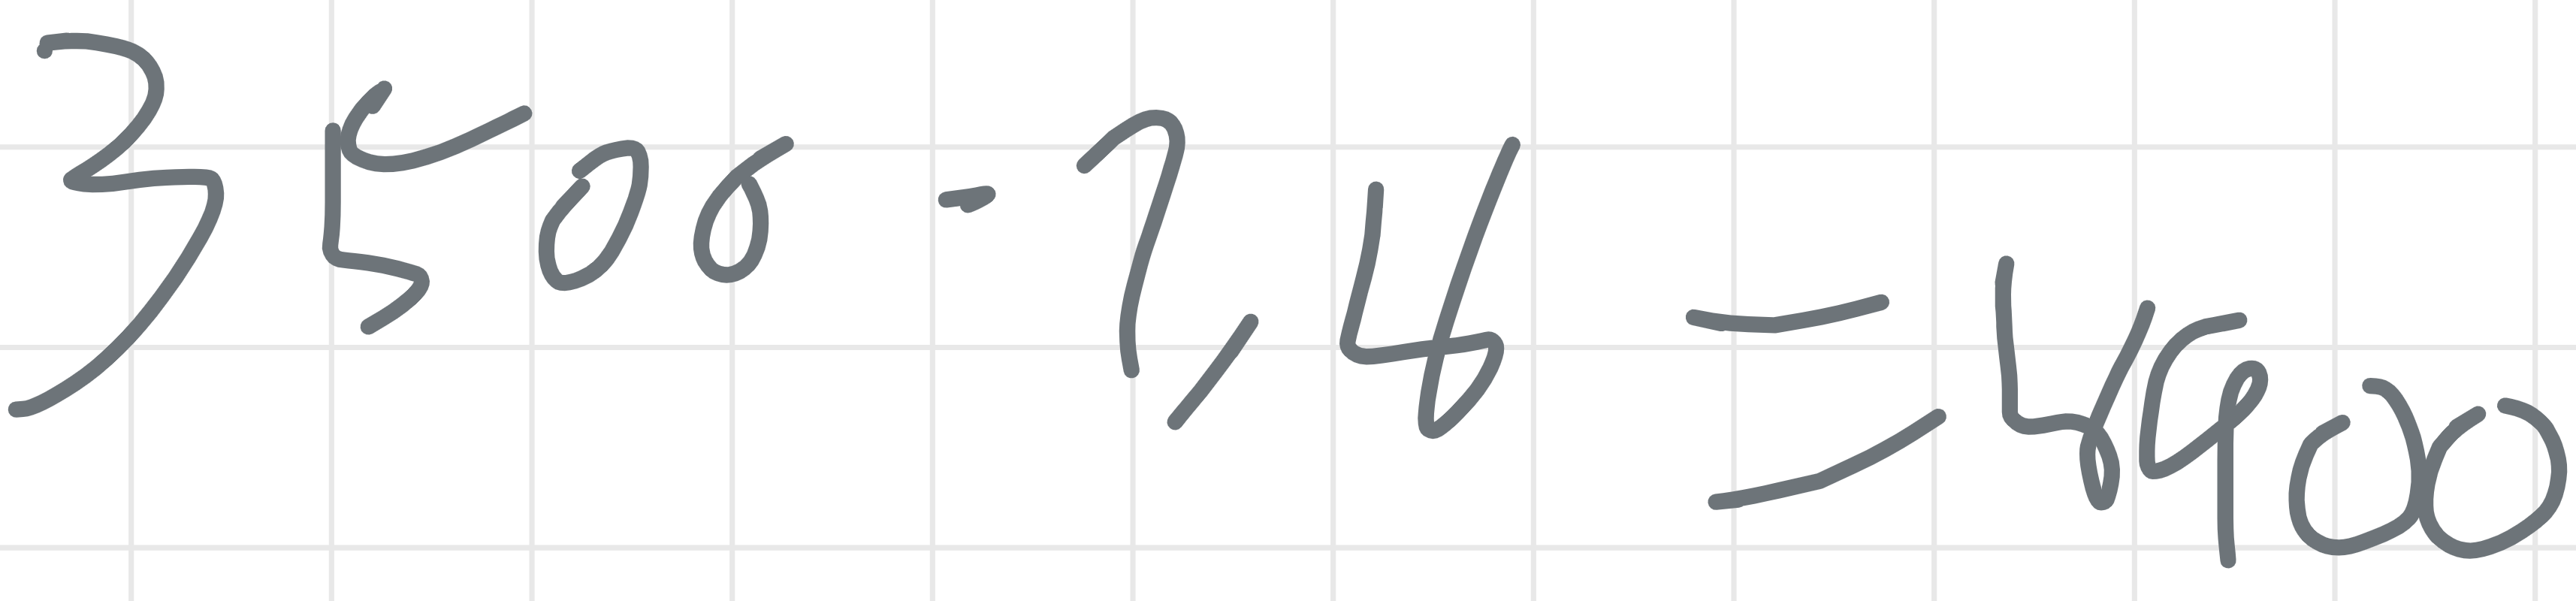 3500 - 1,4 = 4900